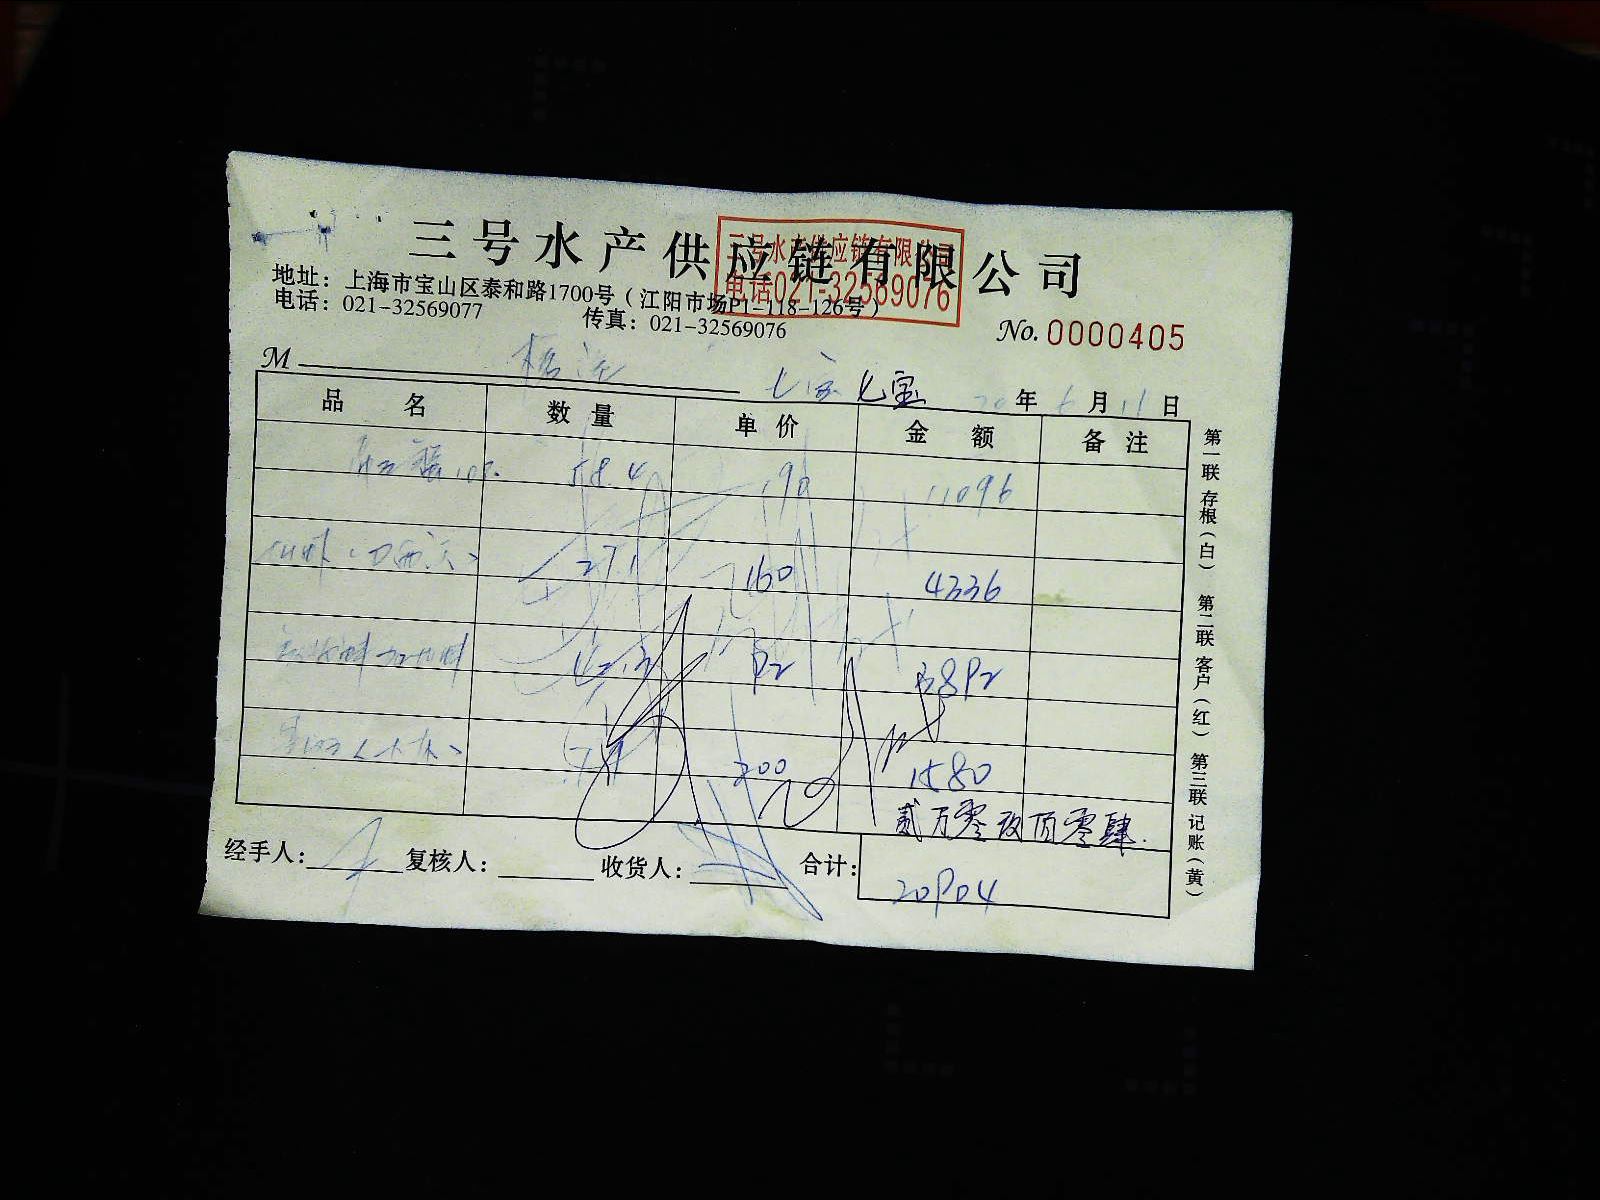 三号水产供应链有限公司
三号水产供应链有限公司
电话021-32569076
地址：上海市宝山区泰和路1700号（江阳市场P1-118-126号）
电话：021-32569077 传真：021-32569076
No. 0000405
M 七宝 七宝 20年6月11日
品名 数量 单价 金额 备注
58.4 190 11096
27.1 160 4336
92 3892
200 1580
贰万零玖佰零肆
经手人： 复核人： 收货人： 合计： 20904
第一联 存根（白） 第二联 客户（红） 第三联 记账（黄）